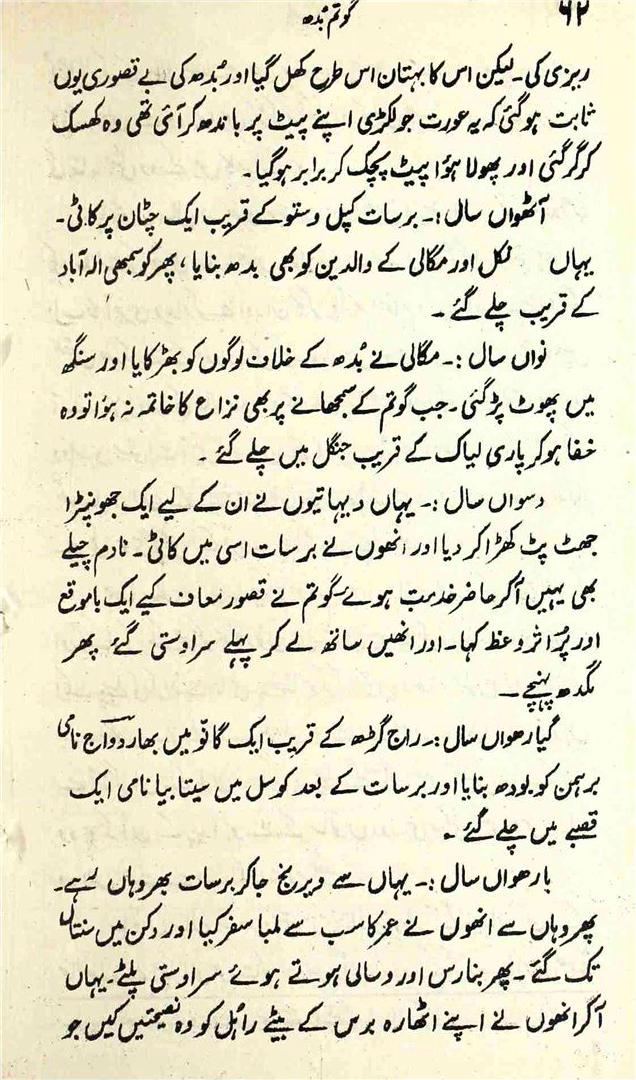 گوتم بُدھ ۶۲
ریزی کی۔ لیکن اس کا بہتان اس طرح کھل گیا اور بُدھ کی بے قصوری یوں
ثابت ہوگئی کہ یہ عورت جو لکڑی اپنے پیٹ پر باندھ کر آئی تھی وہ کھسک
کر گر گئی اور پھولا ہؤا پیٹ پچک کر برابر ہوگیا۔
آٹھواں سال :۔ برسات کپل وستو کے قریب ایک چٹان پر کاٹی۔
یہاں نکل اور مگالی کے والدین کو بھی بدھ بنایا، پھر کوسمبھی الہ آباد
کے قریب چلے گئے۔
نواں سال :۔ مگالی نے بُدھ کے خلاف لوگوں کو بھڑکایا اور سنگھ
میں پھوٹ پڑ گئی۔ جب گوتم کے سمجھانے پر بھی نزاع کا خاتمہ نہ ہؤا تو وہ
خفا ہوکر پاری لیاک کے قریب جنگل میں چلے گئے۔
دسواں سال :۔ یہاں دیہاتیوں نے ان کے لیے ایک جھونپڑا
جھٹ پٹ کھڑا کر دیا اور انھوں نے برسات اسی میں کاٹی۔ نادم چیلے
بھی یہیں آکر حاضر خدمت ہوے گوتم نے قصور معاف کیے ایک باموقع
اور پُر اثر وعظ کہا۔ اور انھیں ساتھ لے کر پہلے سراوستی گئے پھر
مگدھ پہنچے۔
گیارھواں سال :۔ راج گڑھ کے قریب ایک گانو میں بھاردواج نامی
برہمن کو بودھ بنایا اور برسات کے بعد کوسل میں سیتابیا نامی ایک
قصبے میں چلے گئے۔
بارھواں سال :۔ یہاں سے ویرنج جاکر برسات بھر وہاں رہے۔
پھر وہاں سے انھوں نے عمر کا سب سے لمبا سفر کیا اور دکن میں سنتال
تک گئے۔ پھر بنارس اور وسالی ہوتے ہوئے سراوستی پلٹے۔ یہاں
آکر انھوں نے اپنے اٹھارہ برس کے بیٹے راہُل کو وہ نصیحتیں کیں جو